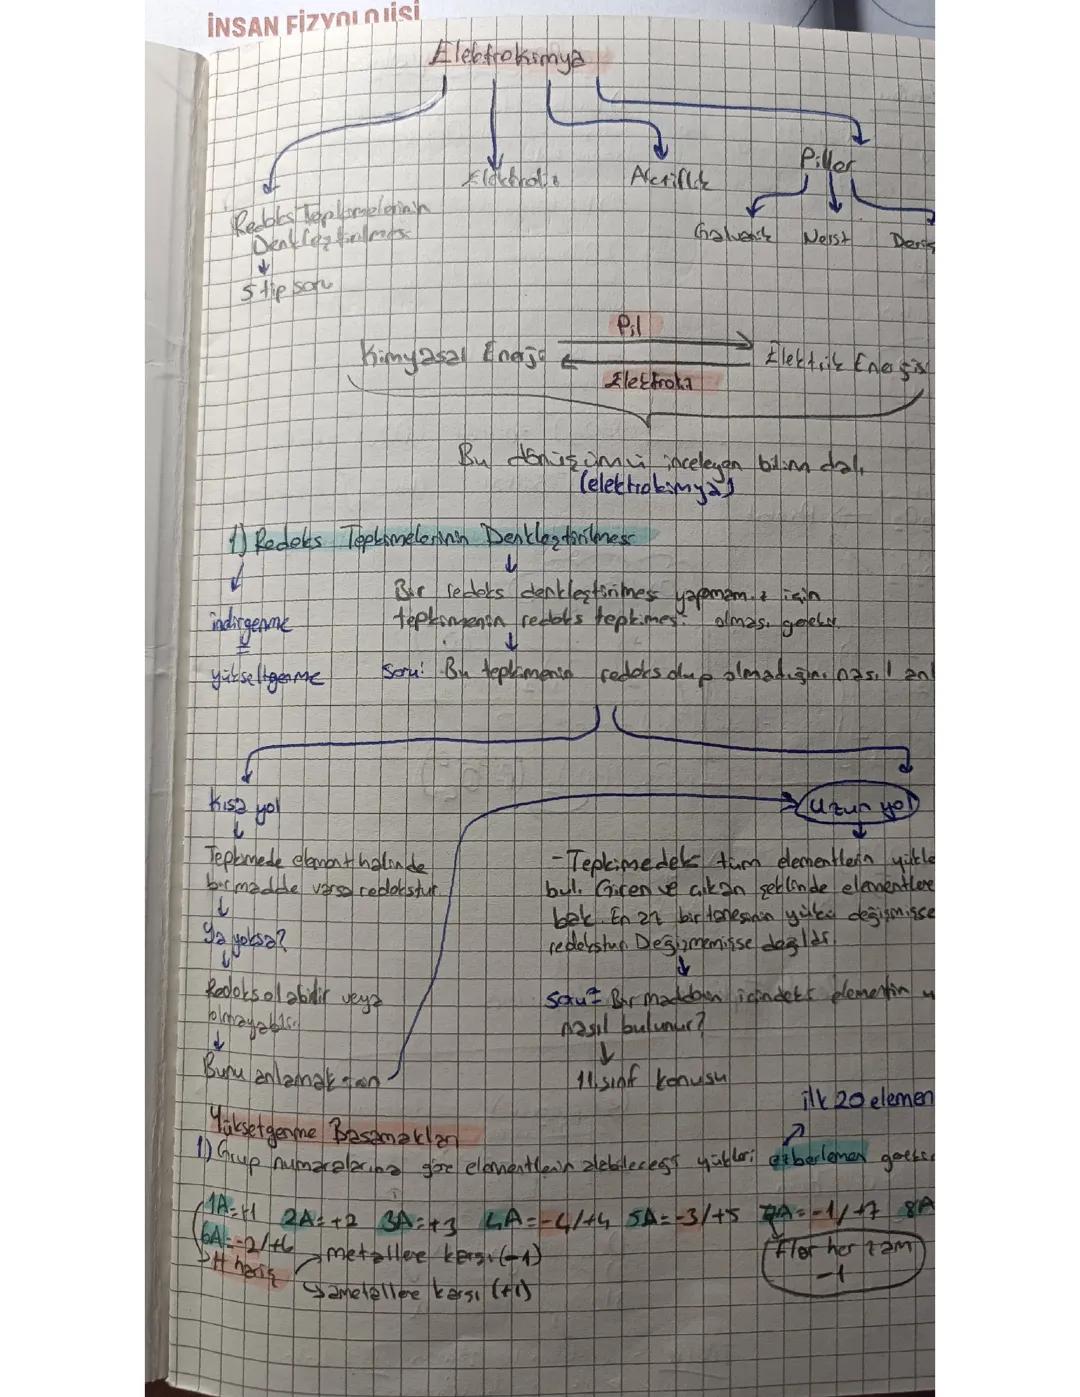 İNSAN FİZYOLOJİSİ
Elektrokimya
Elektroliz
Aktiflik
Piller
Redoks Tepkimelerinin
Denkleştirilmesi
5 tip soru
Galvanik
Nerst
Deriş
Pil
Kimyasal Enerji
Elektrik Enerjisi
Elektroliz
Bu dönüşümü inceleyen bilim dalı
(elektrokimya)
1) Redoks Tepkimelerinin Denkleştirilmesi
indirgenme
yükseltgenme
Bir redoks denkleştirilmesi yapmamız için
tepkimenin redoks tepkimesi olması gerekir.
Soru: Bu tepkimenin redoks olup olmadığını nasıl anl
Kısa yol
Tepkimede element halinde
bir madde varsa redokstur
Ya yoksa?
Redoks olabilir veya
olmayabilir.
Bunu anlamak için
Uzun yol
-Tepkimedeki tüm elementlerin yükle
bul. Giren ve çıkan şeklinde elementlere
bak. En az bir tanesinin yükü değişmişse
redokstur. Değişmemişse değildir.
Soru= Bir maddenin içindeki elementin y
nasıl bulunur?
11. sınıf konusu
ilk 20 elemen
Yüksetgenme Basamakları
1) Grup numaralarına göre elementlerin alabileceği yükleri ezberlemen gerekir
1A=+1 2A=+2 3A=+3 4A=-4/+4 5A=-3/+5 7A=-1/+7 8A
6A=-2/+6
H hariç
metallere karşı (-1)
ametallere karşı (+1)
Flor her zam
-1